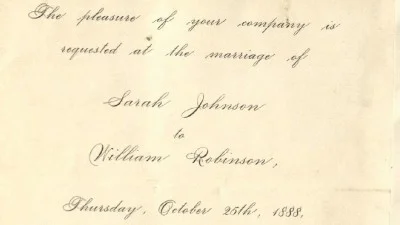 The pleasure of your company is
requested at the marriage of
Sarah Johnson
to
William Robinson,
Thursday, October 25th, 1888,